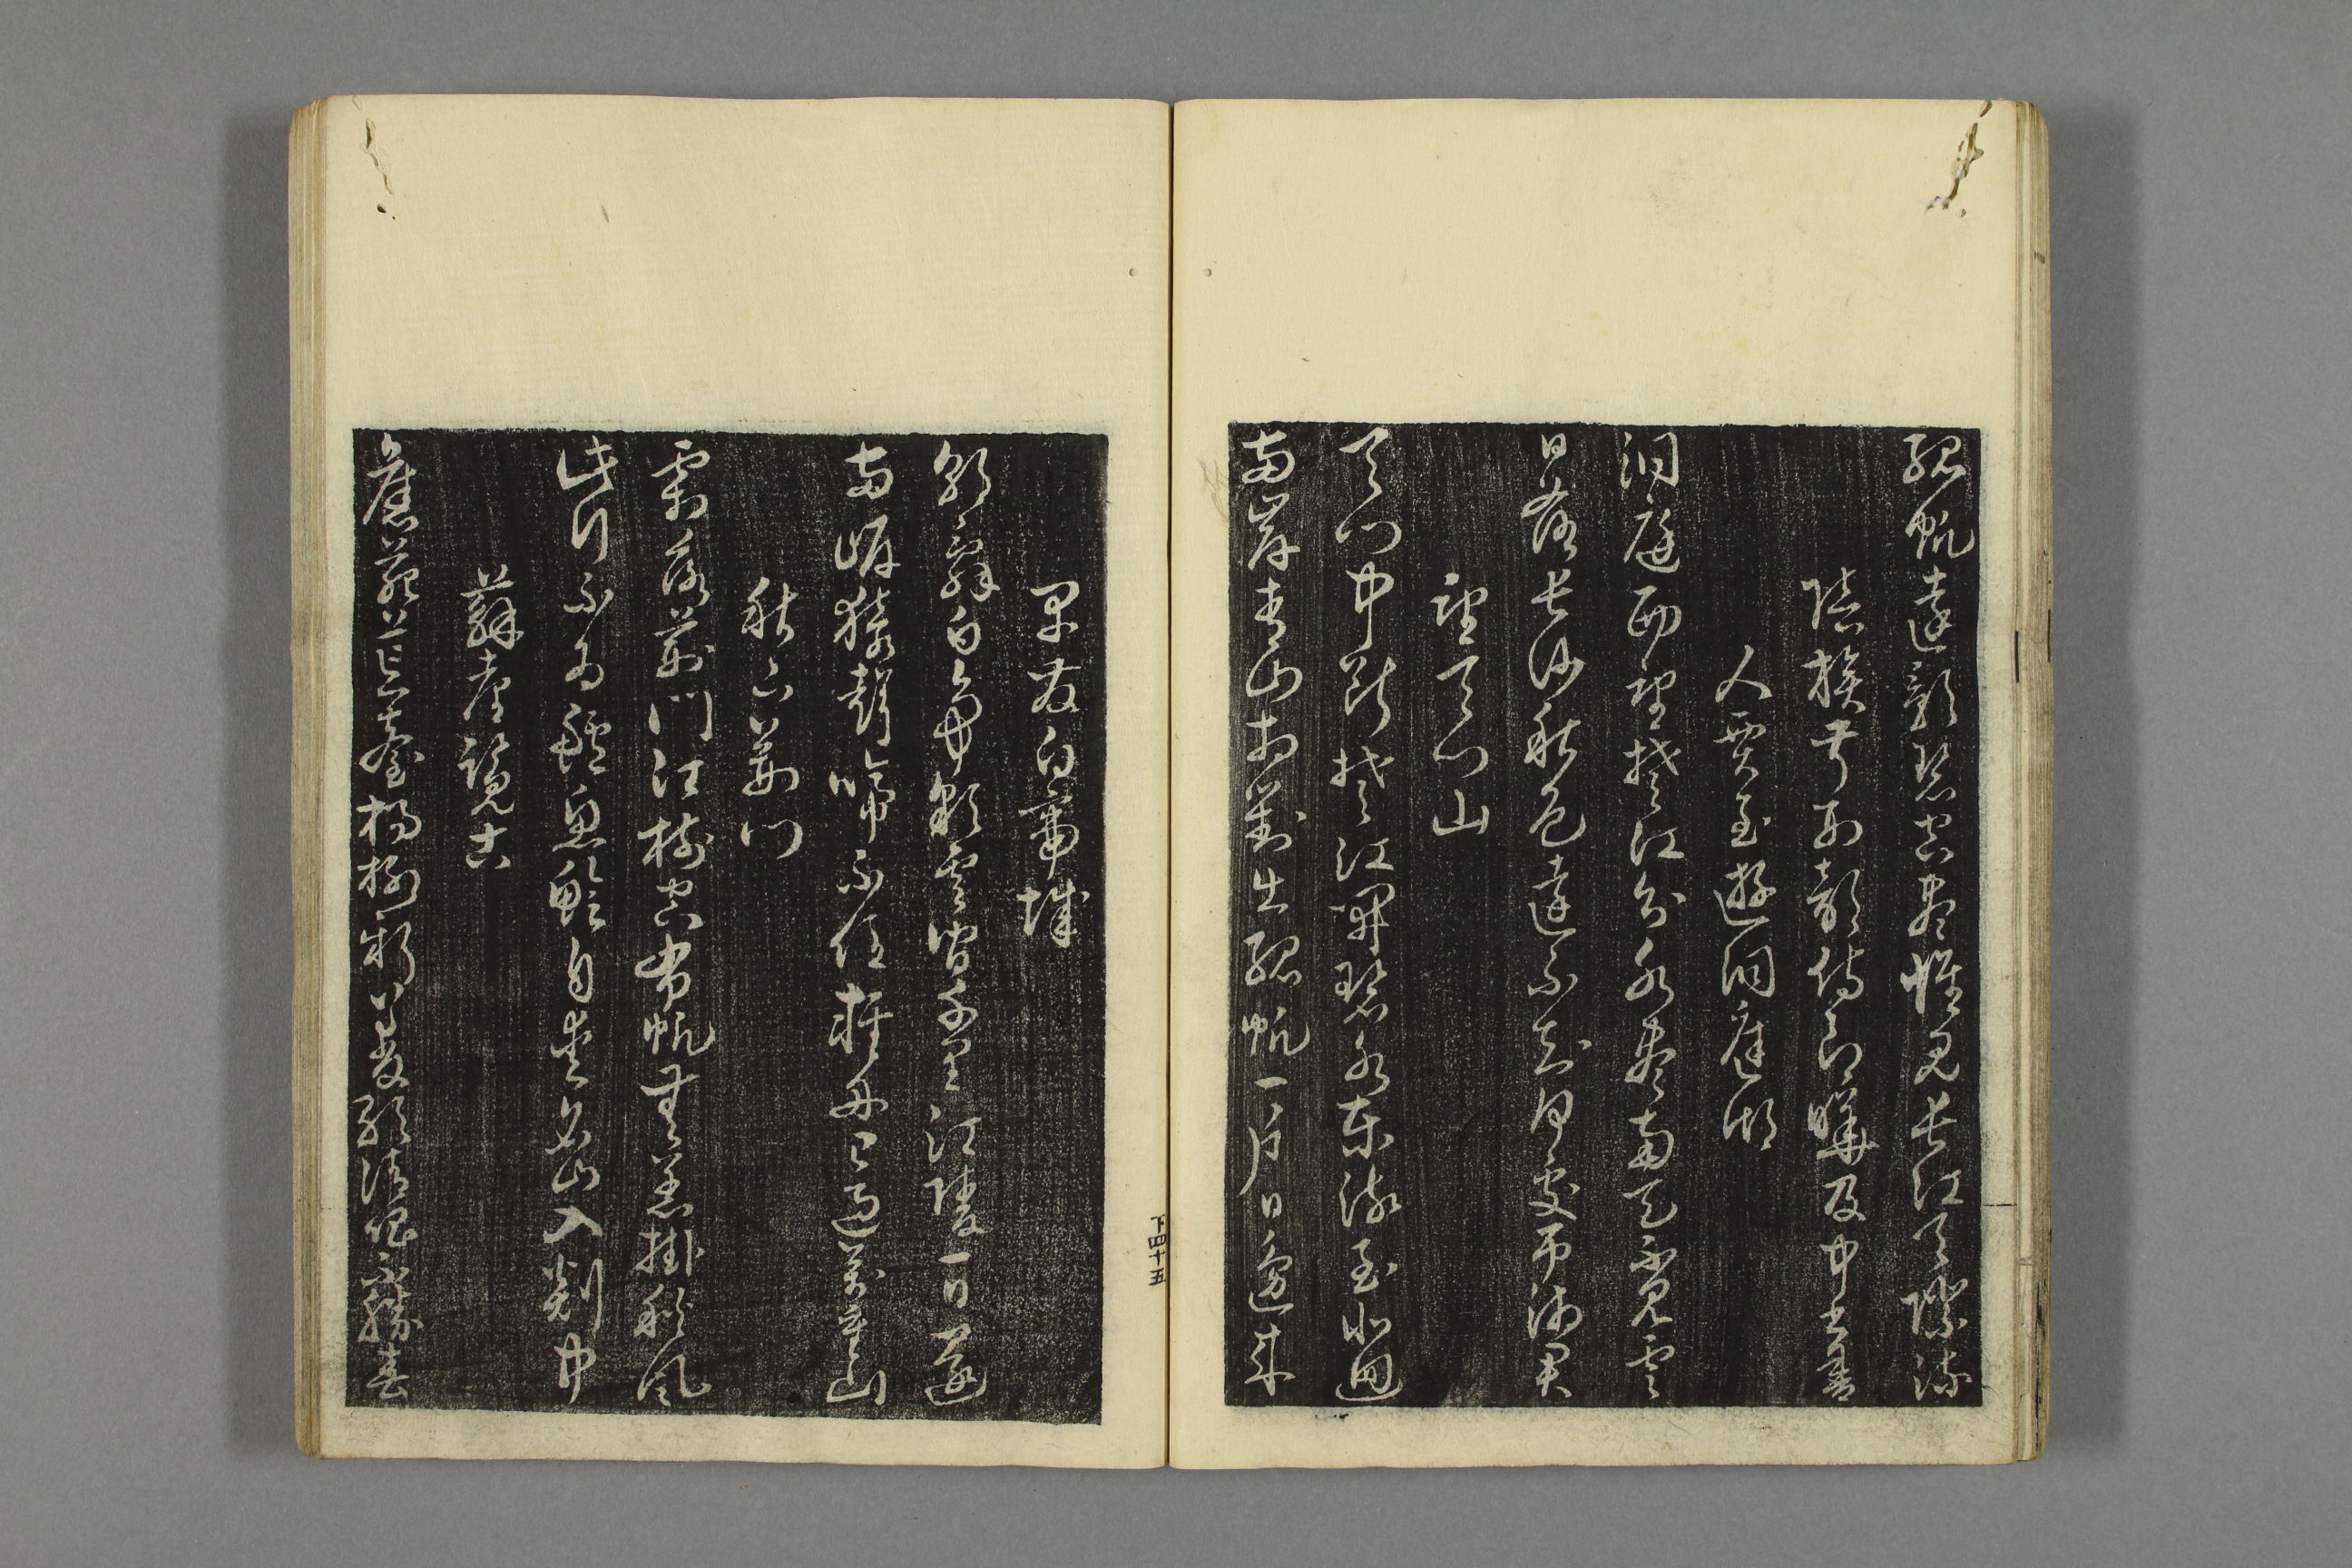 孤帆遠影碧空盡惟見長江天際流
陪族叔刑部侍郎曄及中書
人賈至遊洞庭湖
洞庭西望楚江分水盡南天不見雲
日落長沙秋色遠不知何處吊湘君
望天門山
天門中斷楚江開碧水東流至北迴
兩岸青山相對出孤帆一片日邊來
下四十五
早發白帝城
朝辭白帝彩雲間千里江陵一日還
兩岸猿聲啼不住輕舟已過萬重山
秋下荊門
霜落荊門江樹空布帆無恙掛秋風
此行不為鱸魚鱠自愛名山入剡中
蘇臺覽古
舊苑荒臺楊柳新菱歌清唱不勝春